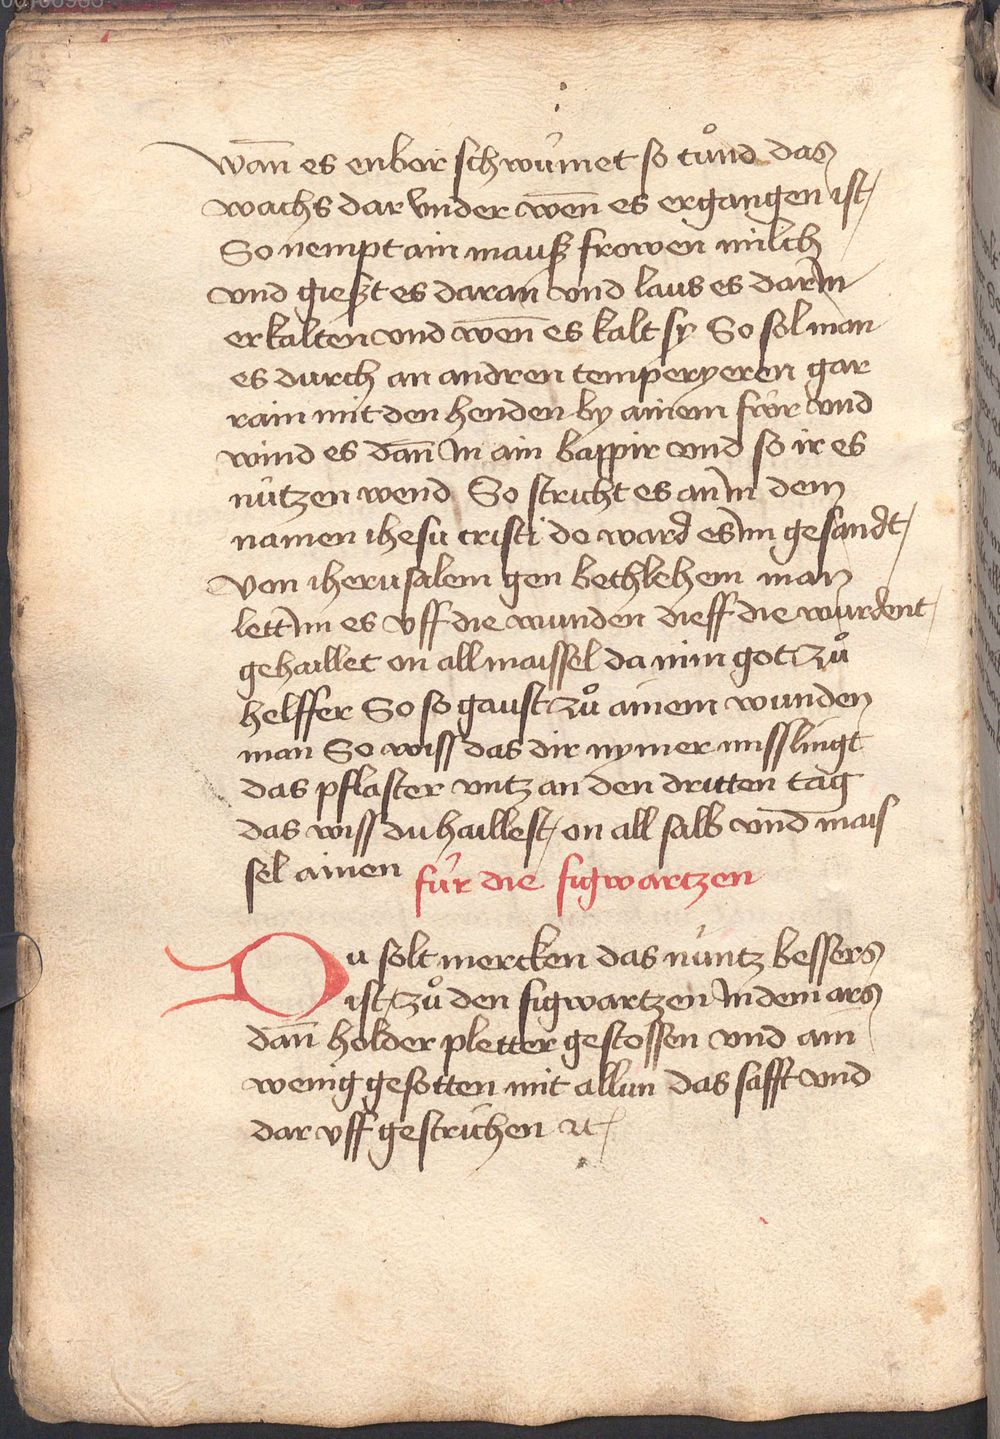 wan̄ es enbor schwúmet so tůnd das
wachs dar vnder wen̄ es ergangen ist
So nempt ain mausz frowen milch
vnd gieszt es daran vnd laus es dar In
erkalten vnd wen̄ es kalt sy So sol man
es durch an andren temperyeren gar
rain mit den henden by ainem fwr vnd
wind es dan̄ In ain bappir vnd so ir es
nútzen wend So stricht es an In dem
namen ihesu cristi do ward es Im gesandt
von iherusalem gen bethlehem man
lett Im es vff die wunden dieff die wurdent
gehaillet on all maissel da mim got zů
helffer So so gaust zů ainem wunden
man So wiss das dir nymer misslingt
das pflaster vntz an den dritten tag
das wiss du haillest on all salb vnd mais
sel ainen fúr die figwartzen
Du solt mercken das núntz bessers
ist zů den figwartzen In dem ars
dan̄ holder pletter gestossen vnd ain
wenig gesotten mit allun das safft vnd
dar vff gestrichen ⁊c